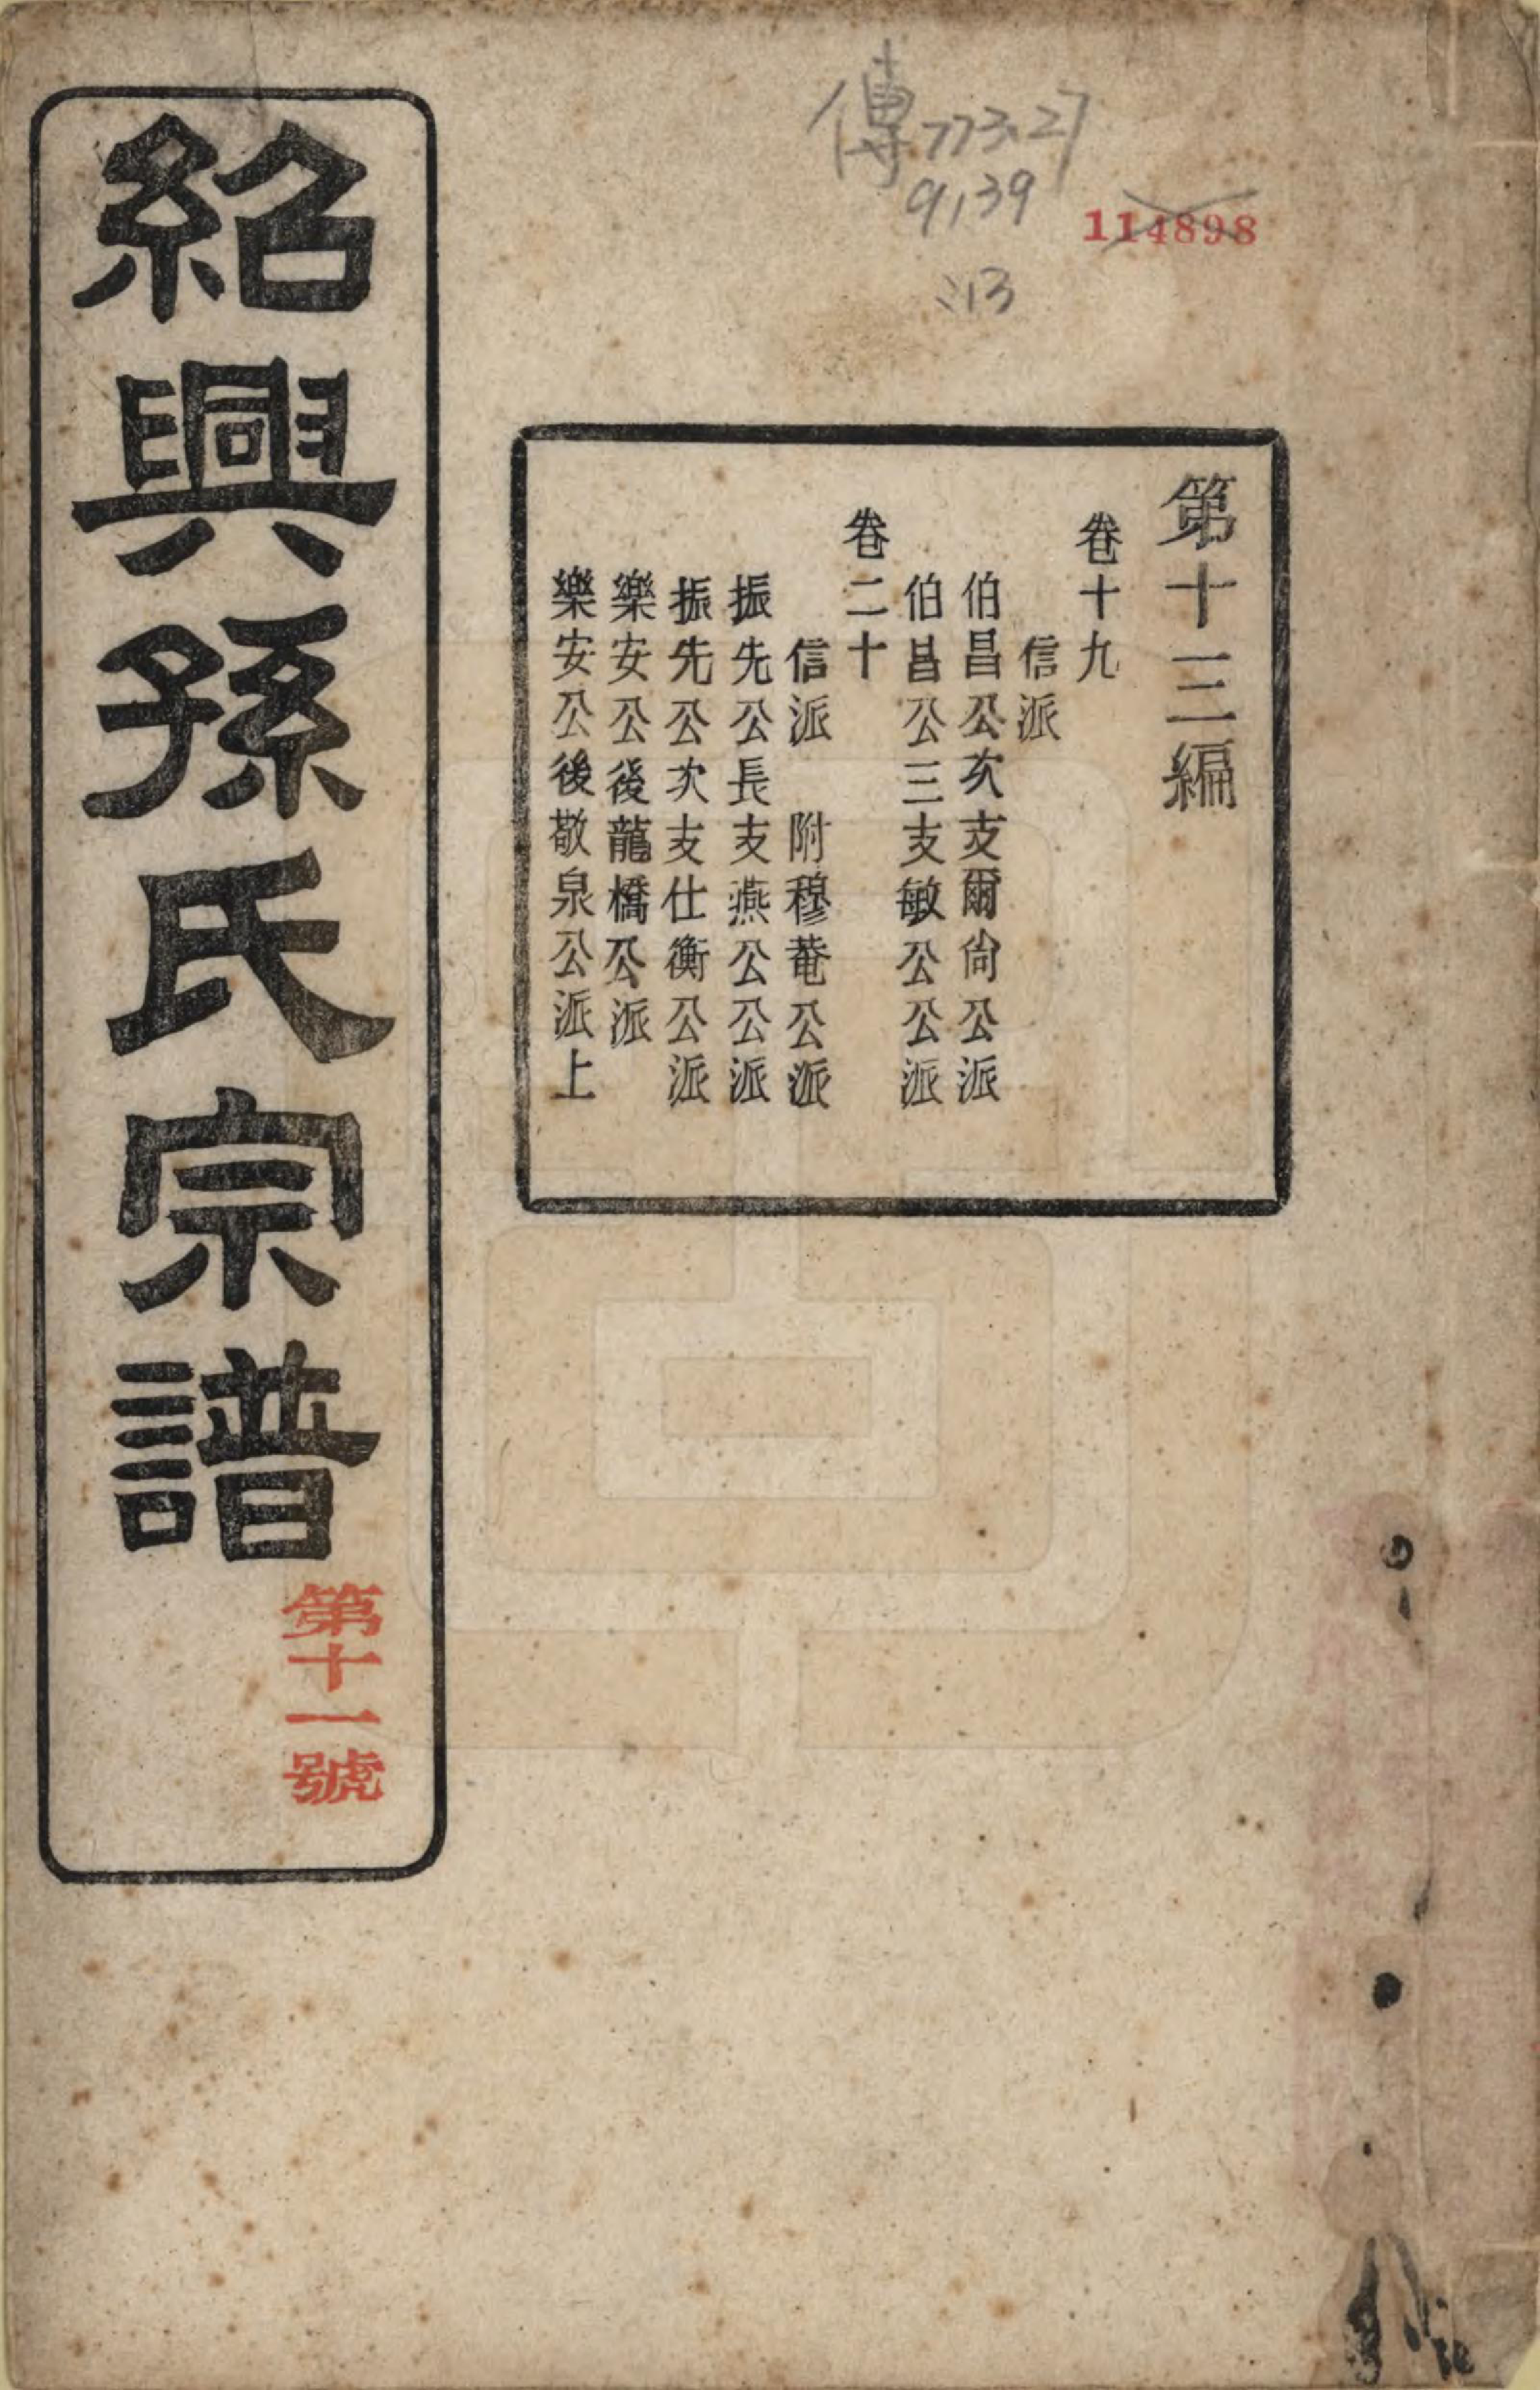 傳 773.27
9139
:13
114898
第十三編
卷十九
信派
伯昌公次支爾尙公派
伯昌公三支敏公公派
卷二十
信派 附穆菴公派
振先公長支燕公公派
振先公次支仕衡公派
樂安公後龍橋公派
樂安公後敬泉公派上
紹興孫氏宗譜
第十一號